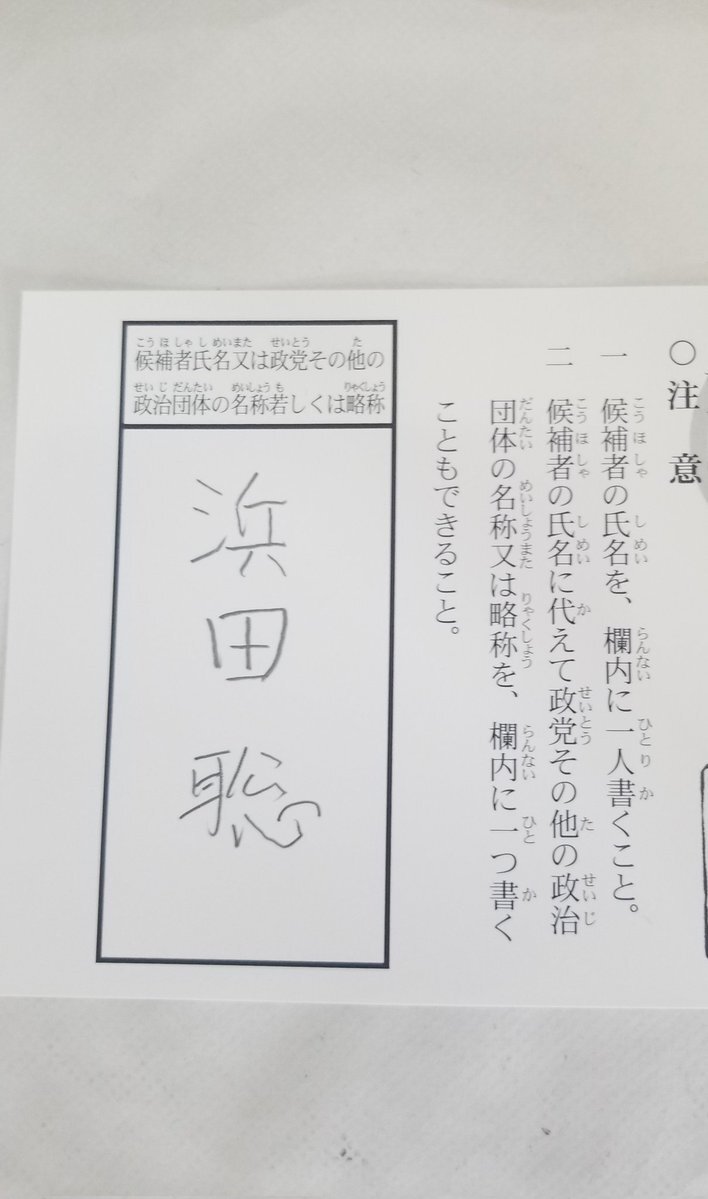 ○注　意
一　候補者の氏名を、欄内に一人書くこと。
二　候補者の氏名に代えて政党その他の政治
団体の名称又は略称を、欄内に一つ書く
こともできること。
候補者氏名又は政党その他の
政治団体の名称若しくは略称
浜田聡